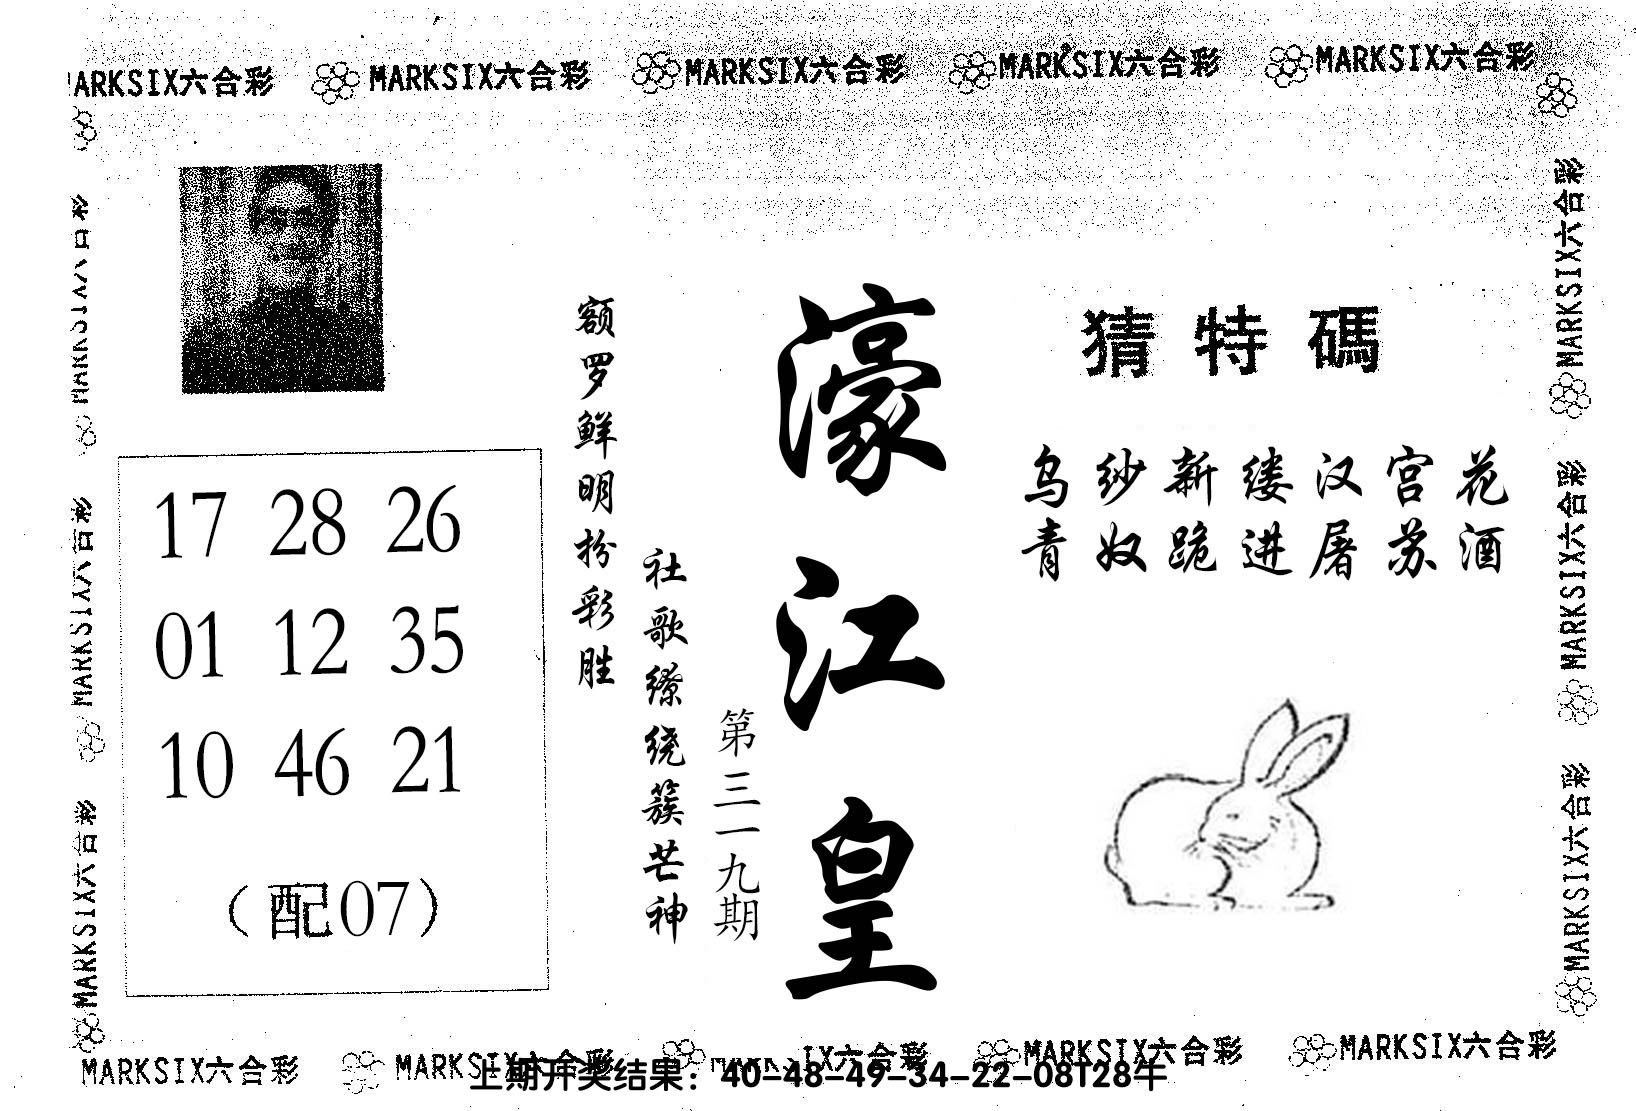 MARKSIX六合彩 MARKSIX六合彩 MARKSIX六合彩 MARKSIX六合彩 MARKSIX六合彩
猜特碼
乌纱新缕汉宫花
青奴跪进屠苏酒
濠江皇
第三一九期
社歌缭绕簇芒神
额罗鲜明扮彩胜
17 28 26
01 12 35
10 46 21
(配07)
MARKSIX六合彩
MARKSIX六合彩
MARKSIX六合彩
MARKSIX六合彩
MARKSIX六合彩
MARKSIX六合彩
MARKSIX六合彩 MARKSIX六合彩 MARKSIX六合彩 MARKSIX六合彩 MARKSIX六合彩
上期开奖结果：40-48-49-34-22-08T28牛